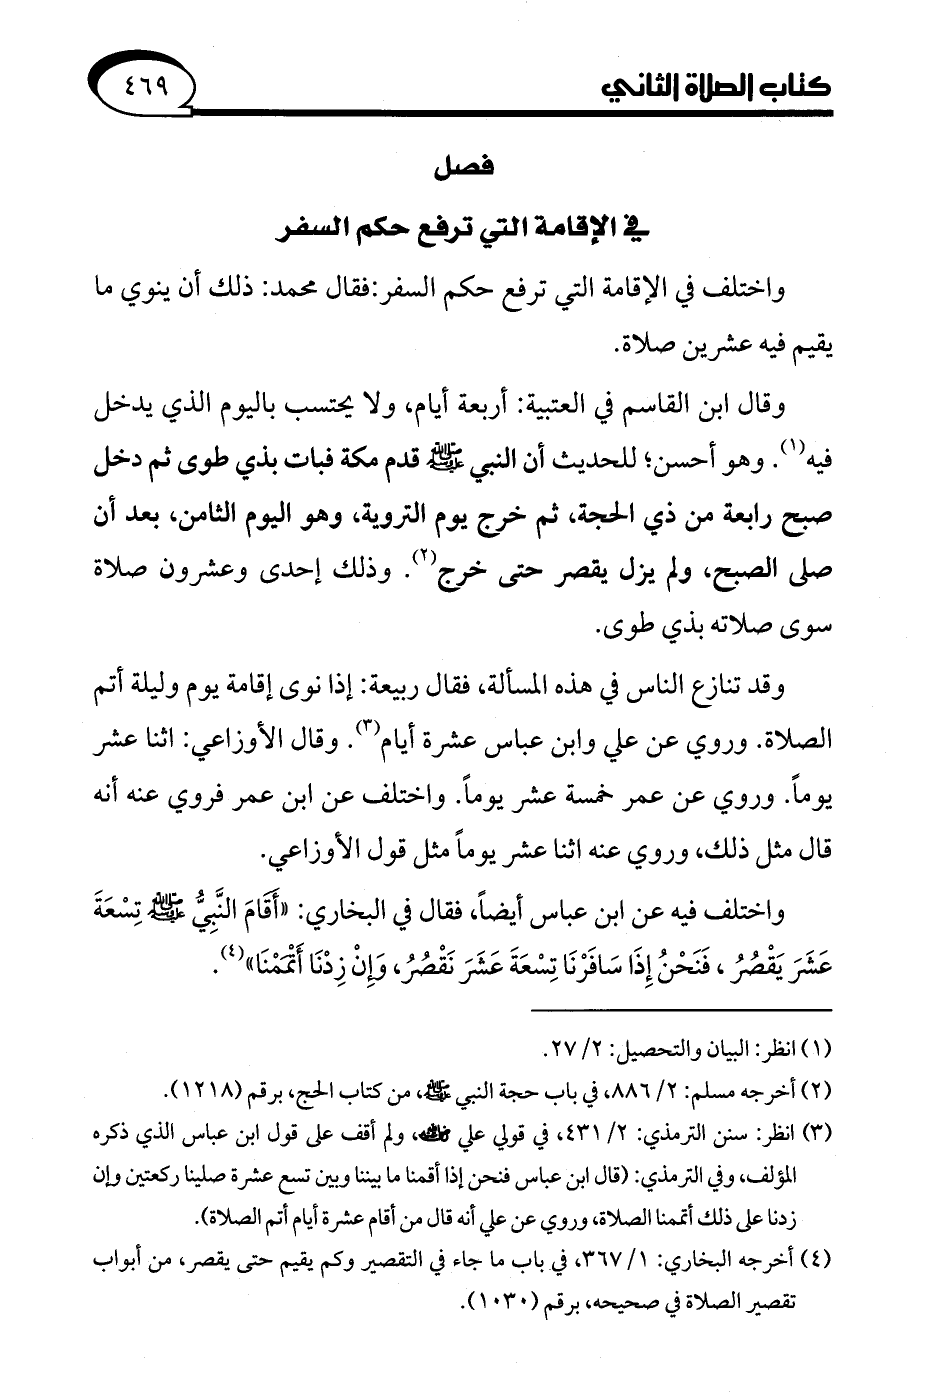 كتاب الصلاة الثاني
٤٦٩
فصل
في الإقامة التي ترفع حكم السفر
واختلف في الإقامة التي ترفع حكم السفر:فقال محمد: ذلك أن ينوي ما
يقيم فيه عشرين صلاة.
وقال ابن القاسم في العتبية: أربعة أيام، ولا يحتسب باليوم الذي يدخل
فيه(١). وهو أحسن؛ للحديث أن النبي ﷺ قدم مكة فبات بذي طوى ثم دخل
صبح رابعة من ذي الحجة، ثم خرج يوم التروية، وهو اليوم الثامن، بعد أن
صلى الصبح، ولم يزل يقصر حتى خرج(٢). وذلك إحدى وعشرون صلاة
سوى صلاته بذي طوى.
وقد تنازع الناس في هذه المسألة، فقال ربيعة: إذا نوى إقامة يوم وليلة أتم
الصلاة. وروي عن علي وابن عباس عشرة أيام(٣). وقال الأوزاعي: اثنا عشر
يوماً. وروي عن عمر خمسة عشر يوماً. واختلف عن ابن عمر فروي عنه أنه
قال مثل ذلك، وروي عنه اثنا عشر يوماً مثل قول الأوزاعي.
واختلف فيه عن ابن عباس أيضاً، فقال في البخاري: «أَقَامَ النَّبِيُّ ﷺ تِسْعَةَ
عَشَرَ يَقْصُرُ ، فَنَحْنُ إِذَا سَافَرْنَا تِسْعَةَ عَشَرَ نَقْصُرُ، وَإِنْ زِدْنَا أَتْمَمْنَا»(٤).
(١) انظر: البيان والتحصيل: ٢/ ٢٧.
(٢) أخرجه مسلم: ٢/ ٨٨٦، في باب حجة النبي ﷺ، من كتاب الحج، برقم (١٢١٨).
(٣) انظر: سنن الترمذي: ٢/ ٤٣١، في قولي علي رضي الله عنه، ولم أقف على قول ابن عباس الذي ذكره
المؤلف، وفي الترمذي: (قال ابن عباس فنحن إذا أقمنا ما بيننا وبين تسع عشرة صلينا ركعتين وإن
زدنا على ذلك أتممنا الصلاة، وروي عن علي أنه قال من أقام عشرة أيام أتم الصلاة).
(٤) أخرجه البخاري: ١/ ٣٦٧، في باب ما جاء في التقصير وكم يقيم حتى يقصر، من أبواب
تقصير الصلاة في صحيحه، برقم (١٠٣٠).